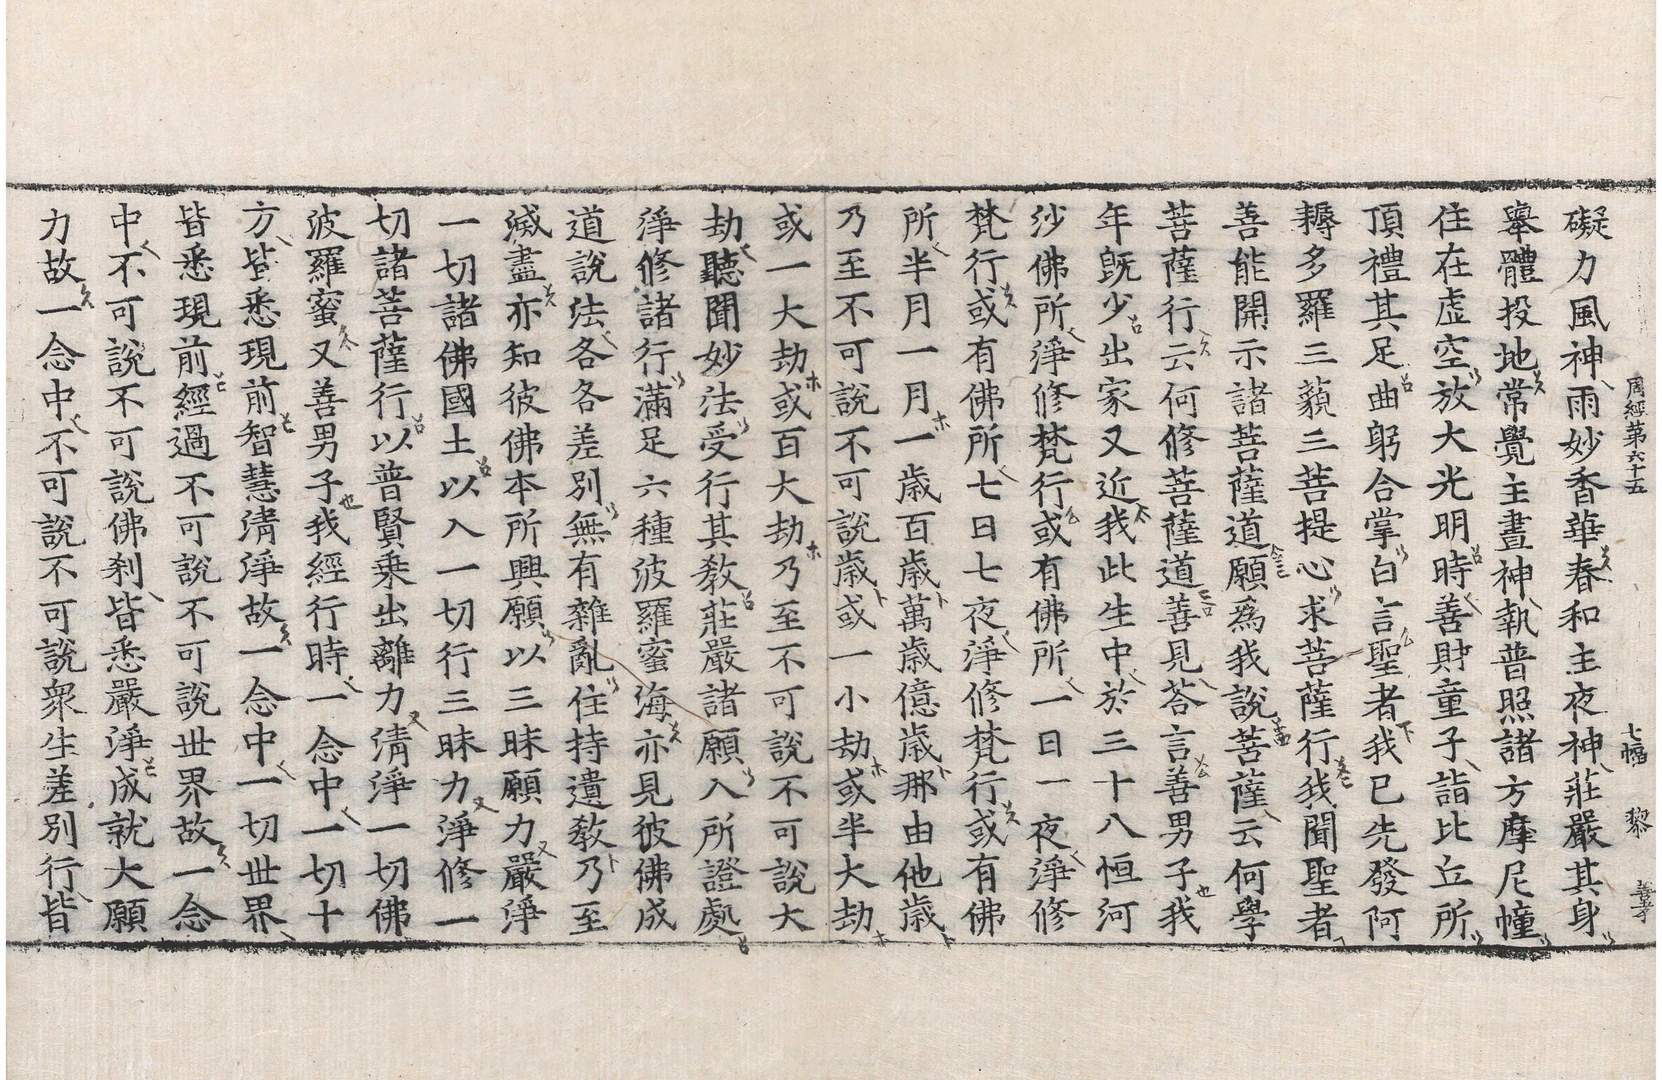 周經第六十五 七幅 黎
礙力風神雨妙香華春和主夜神莊嚴其身
擧體投地常覺主晝神執普照諸方摩尼幢
住在虛空放大光明時善財童子詣比丘所
頂禮其足曲躬合掌白言聖者我已先發阿
耨多羅三藐三菩提心求菩薩行我聞聖者
善能開示諸菩薩道願爲我說菩薩云何學
菩薩行云何修菩薩道善見荅言善男子我
年旣少出家又近我此生中於三十八恒河
沙佛所淨修梵行或有佛所一日一夜淨修
梵行或有佛所七日七夜淨修梵行或有佛
所半月一月一歲百歲萬歲億歲那由他歲
乃至不可說不可說歲或一小劫或半大劫
或一大劫或百大劫乃至不可說不可說大
劫聽聞妙法受行其敎莊嚴諸願入所證處
淨修諸行滿足六種波羅蜜海亦見彼佛成
道說法各各差別無有雜亂住持遺敎乃至
滅盡亦知彼佛本所興願以三昧願力嚴淨
一切諸佛國土以入一切行三昧力淨修一
切諸菩薩行以普賢乗出離力淸淨一切佛
波羅蜜又善男子我經行時一念中一切十
方皆悉現前智慧淸淨故一念中一切世界
皆悉現前經過不可說不可說世界故一念
中不可說不可說佛刹皆悉嚴淨成就大願
力故一念中不可說不可說衆生差別行皆